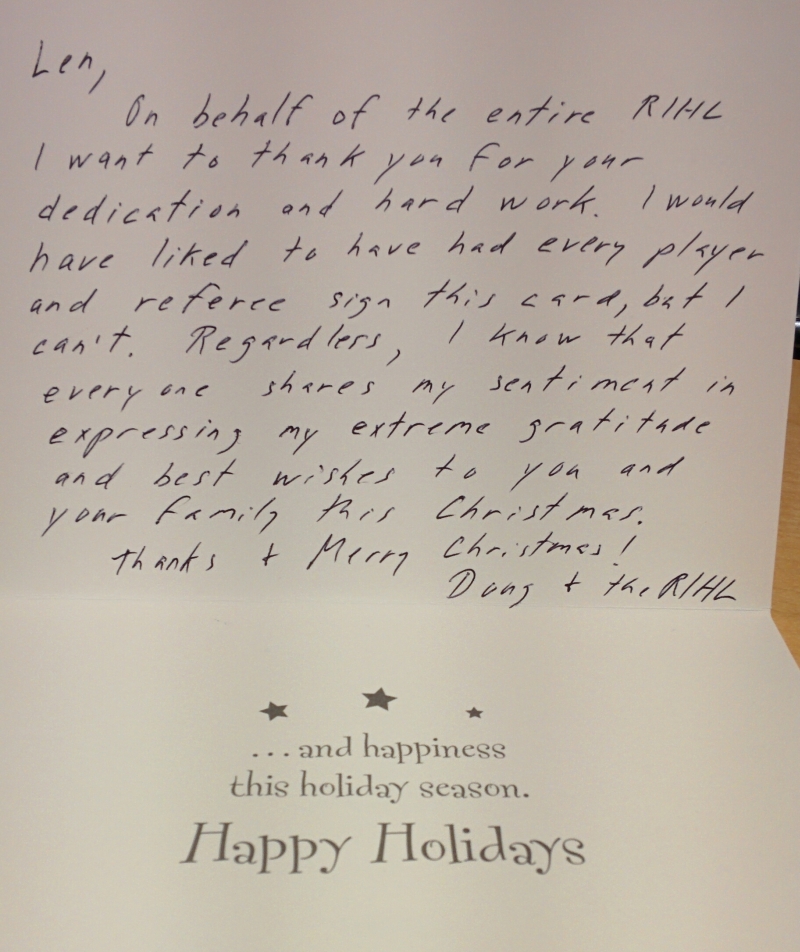 Len,
On behalf of the entire RIHL
I want to thank you for your
dedication and hard work. I would
have liked to have had every player
and referee sign this card, but I
can't. Regardless, I know that
everyone shares my sentiment in
expressing my extreme gratitude
and best wishes to you and
your family this Christmas.
Thanks + Merry Christmas!
Doug + the RIHL
...and happiness
this holiday season.
Happy Holidays